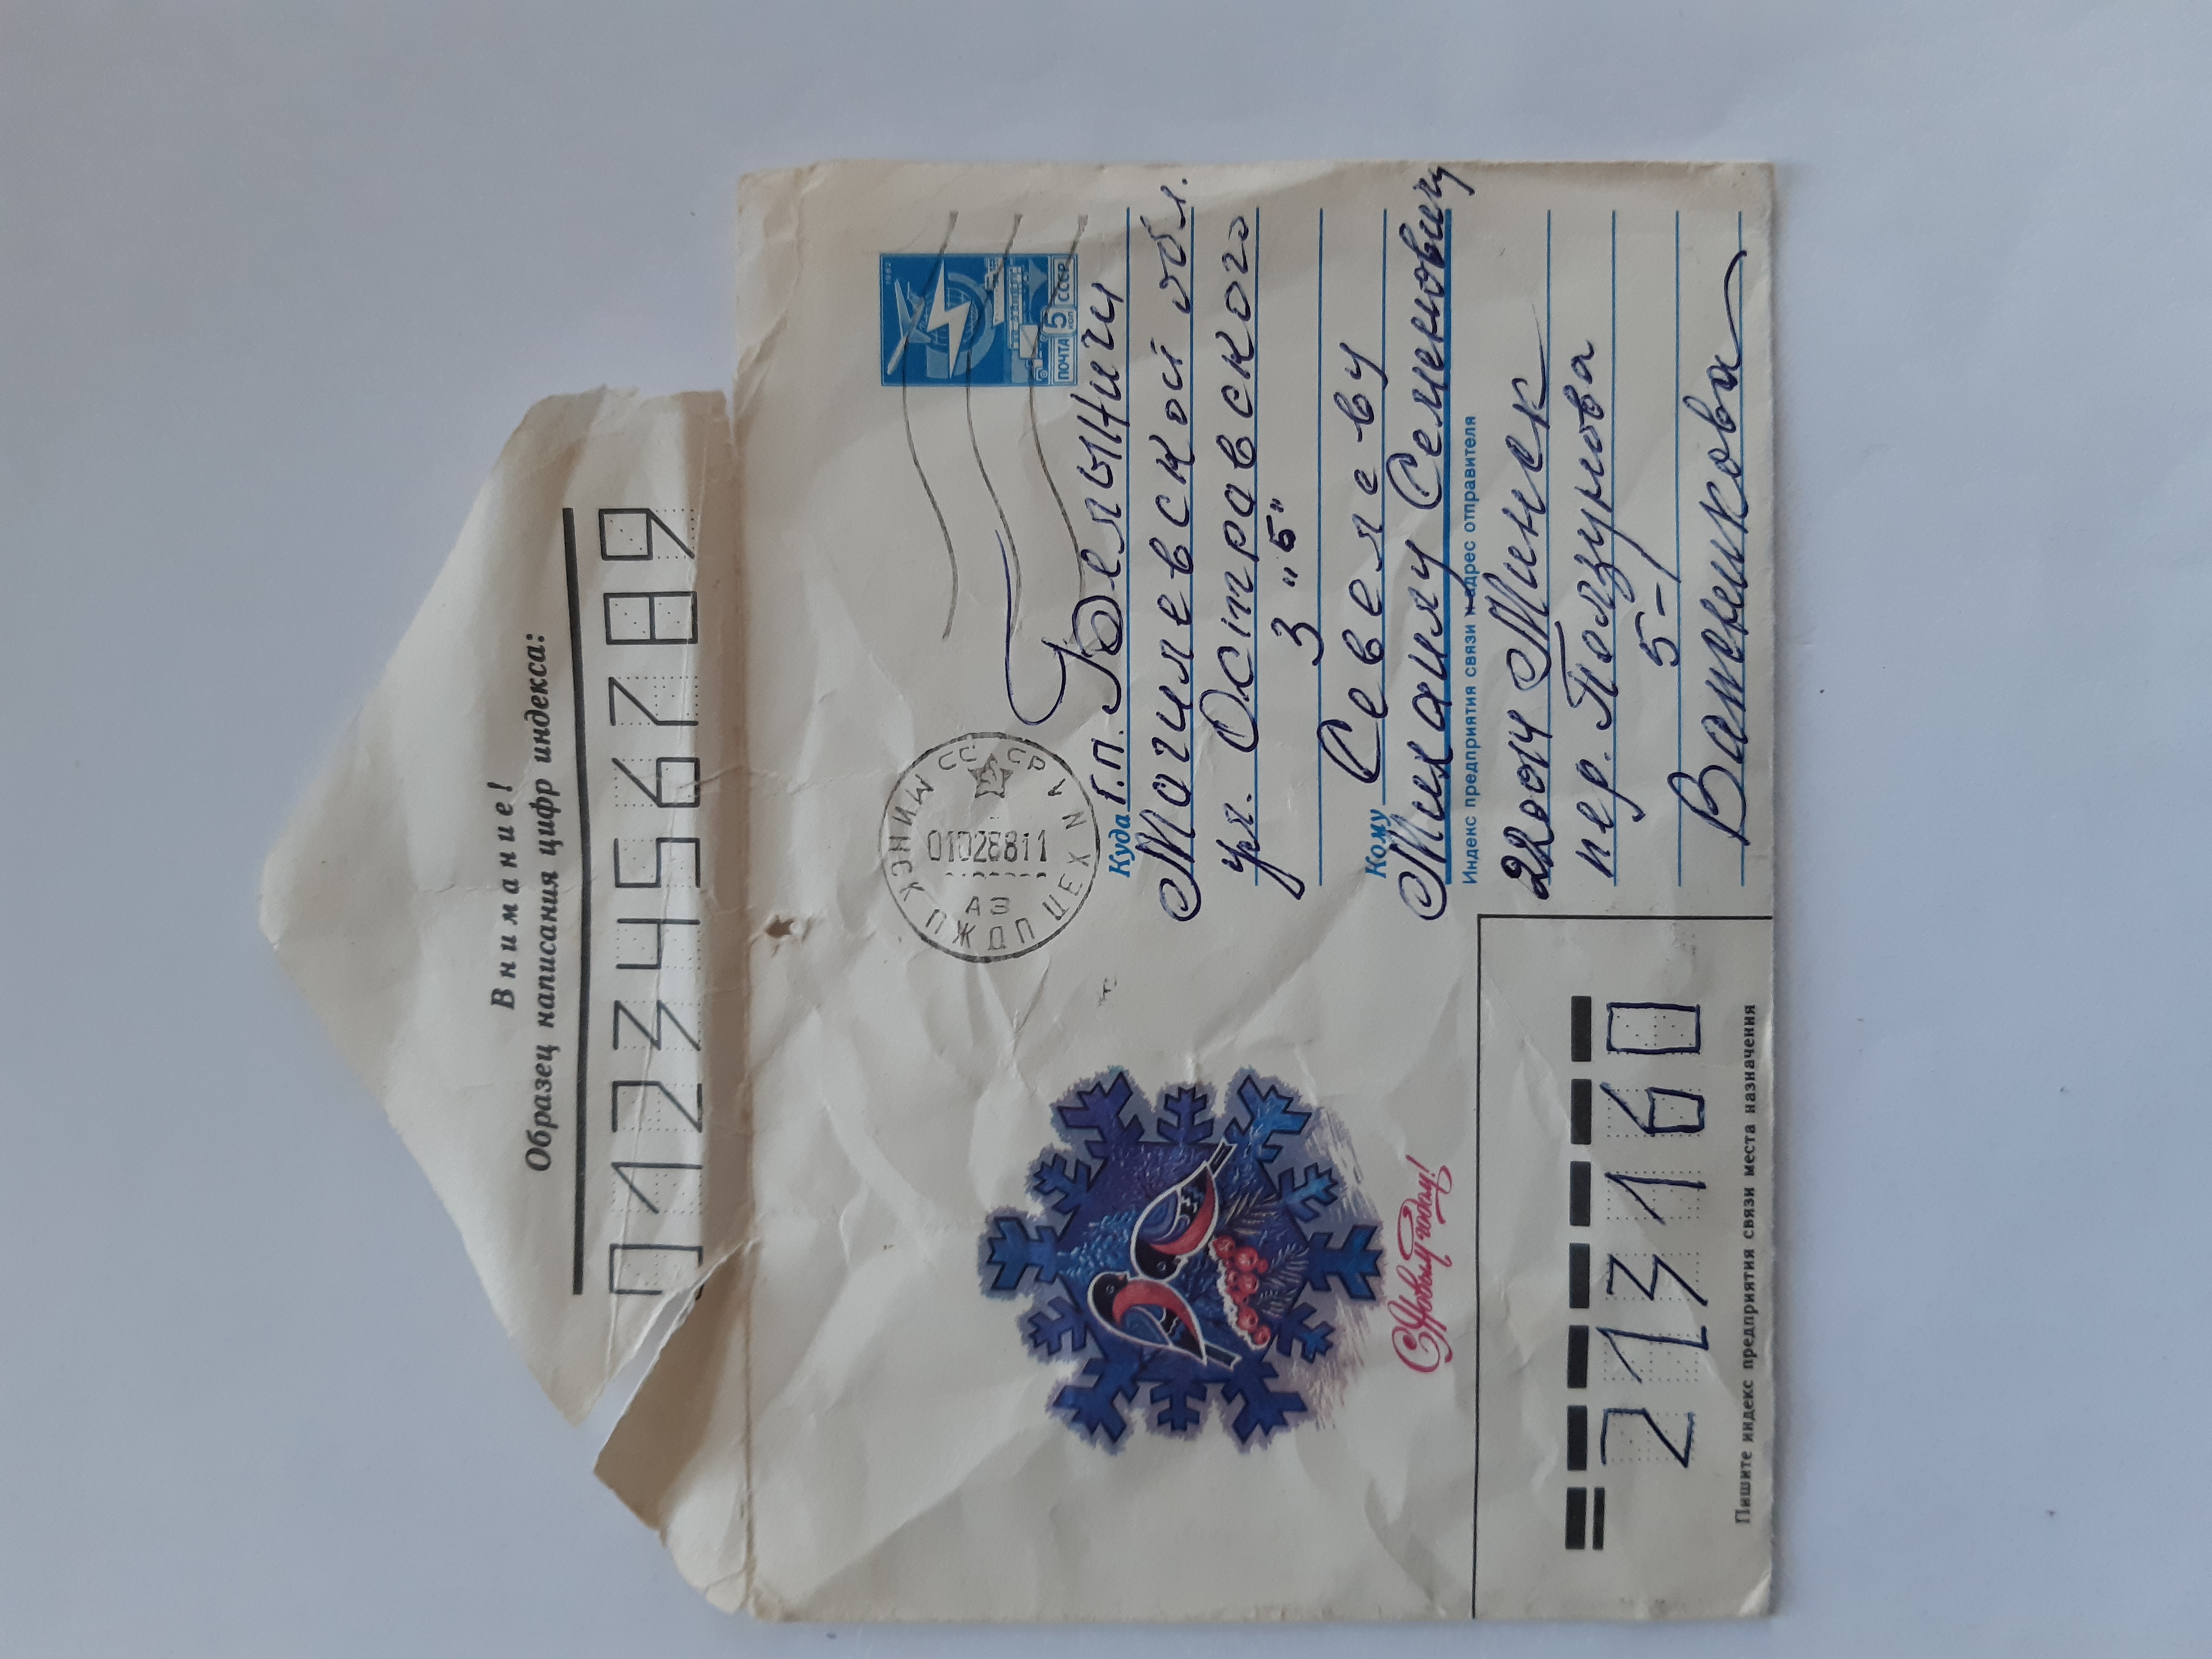 Внимание!
Образец написания цифр индекса:
0123456789
МИНСК ПЖДП ЦЕХ N 1
СССР
АВ
1982
ПОЧТА 5 КОП СССР
Куда г.п. Белыничи
Могилевской обл.
ул. Островского
3 "Б"
Кому Севелеву
Михаилу Семеновичу
С Новым годом!
Индекс предприятия связи и адрес отправителя
220014 Минск
пер. Ползунова
5-1
Важникова
213160
Пишите индекс предприятия связи места назначения